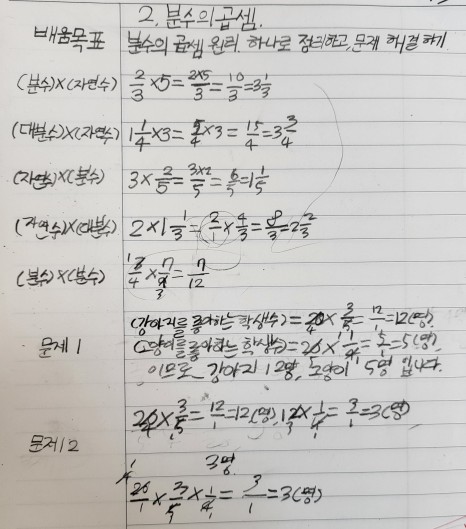 2. 분수의 곱셈.
배움목표 분수의 곱셈 원리 하나로 정리하고, 문제 해결하기
(분수)×(자연수) 2/3×5=2×5/3=10/3=3 1/3
(대분수)×(자연수) 1 1/4×3=5/4×3=15/4=3 3/4
(자연수)×(분수) 3×2/5=3×2/5=6/5=1 1/5
(자연수)×(대분수) 2×1 1/3=2/1×4/3=8/3=2 2/3
(분수)×(분수) 3/4×7/9=7/12
(강아지를 좋아하는 학생수)=20×3/5=12/1=12(명).
문제 1 (고양이를 좋아하는 학생수)=20×1/4=5/1=5(명)
이므로 강아지 12명, 고양이 5명 입니다.
20×3/5=12/1=12(명), 12×1/4=3/1=3(명)
문제 2
3명
20/1×3/5×1/4=3/1=3(명)